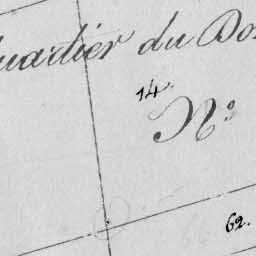 uartier du Do
14.
N.º
62.